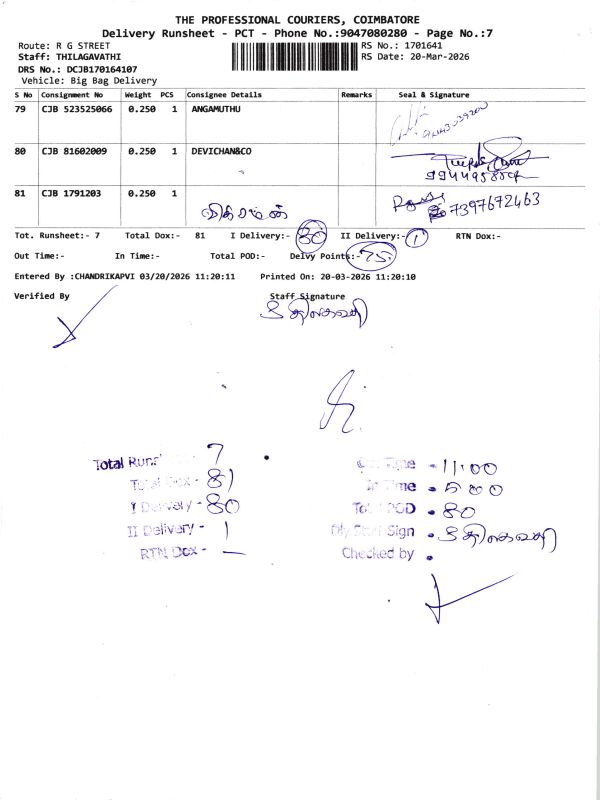 THE PROFESSIONAL COURIERS, COIMBATORE
Delivery Runsheet - PCT - Phone No.:9047080280 - Page No.:7
Route: R G STREET
RS No.: 1701641
Staff: THILAGAVATHI
RS Date: 20-Mar-2026
DRS No.: DCJB170164107
Vehicle: Big Bag Delivery
S No Consignment No Weight PCS Consignee Details Remarks Seal & Signature
79 CJB 523525066 0.250 1 ANGAMUTHU
80 CJB 81602009 0.250 1 DEVICHAN&CO
81 CJB 1791203 0.250 1
7397672463
Tot. Runsheet:- 7 Total Dox:- 81 I Delivery:- 80 II Delivery:- 1 RTN Dox:-
Out Time:- In Time:- Total POD:- Delvy Points:- 75
Entered By :CHANDRIKAPVI 03/20/2026 11:20:11 Printed On: 20-03-2026 11:20:10
Verified By Staff Signature
Total Runs 7
Total Dox - 81
I Delivery - 80
II Delivery - 1
RTN Dox - —
Out Time - 11:00
In Time - 5:00
Total POD - 80
Dly.Staff Sign -
Checked by -